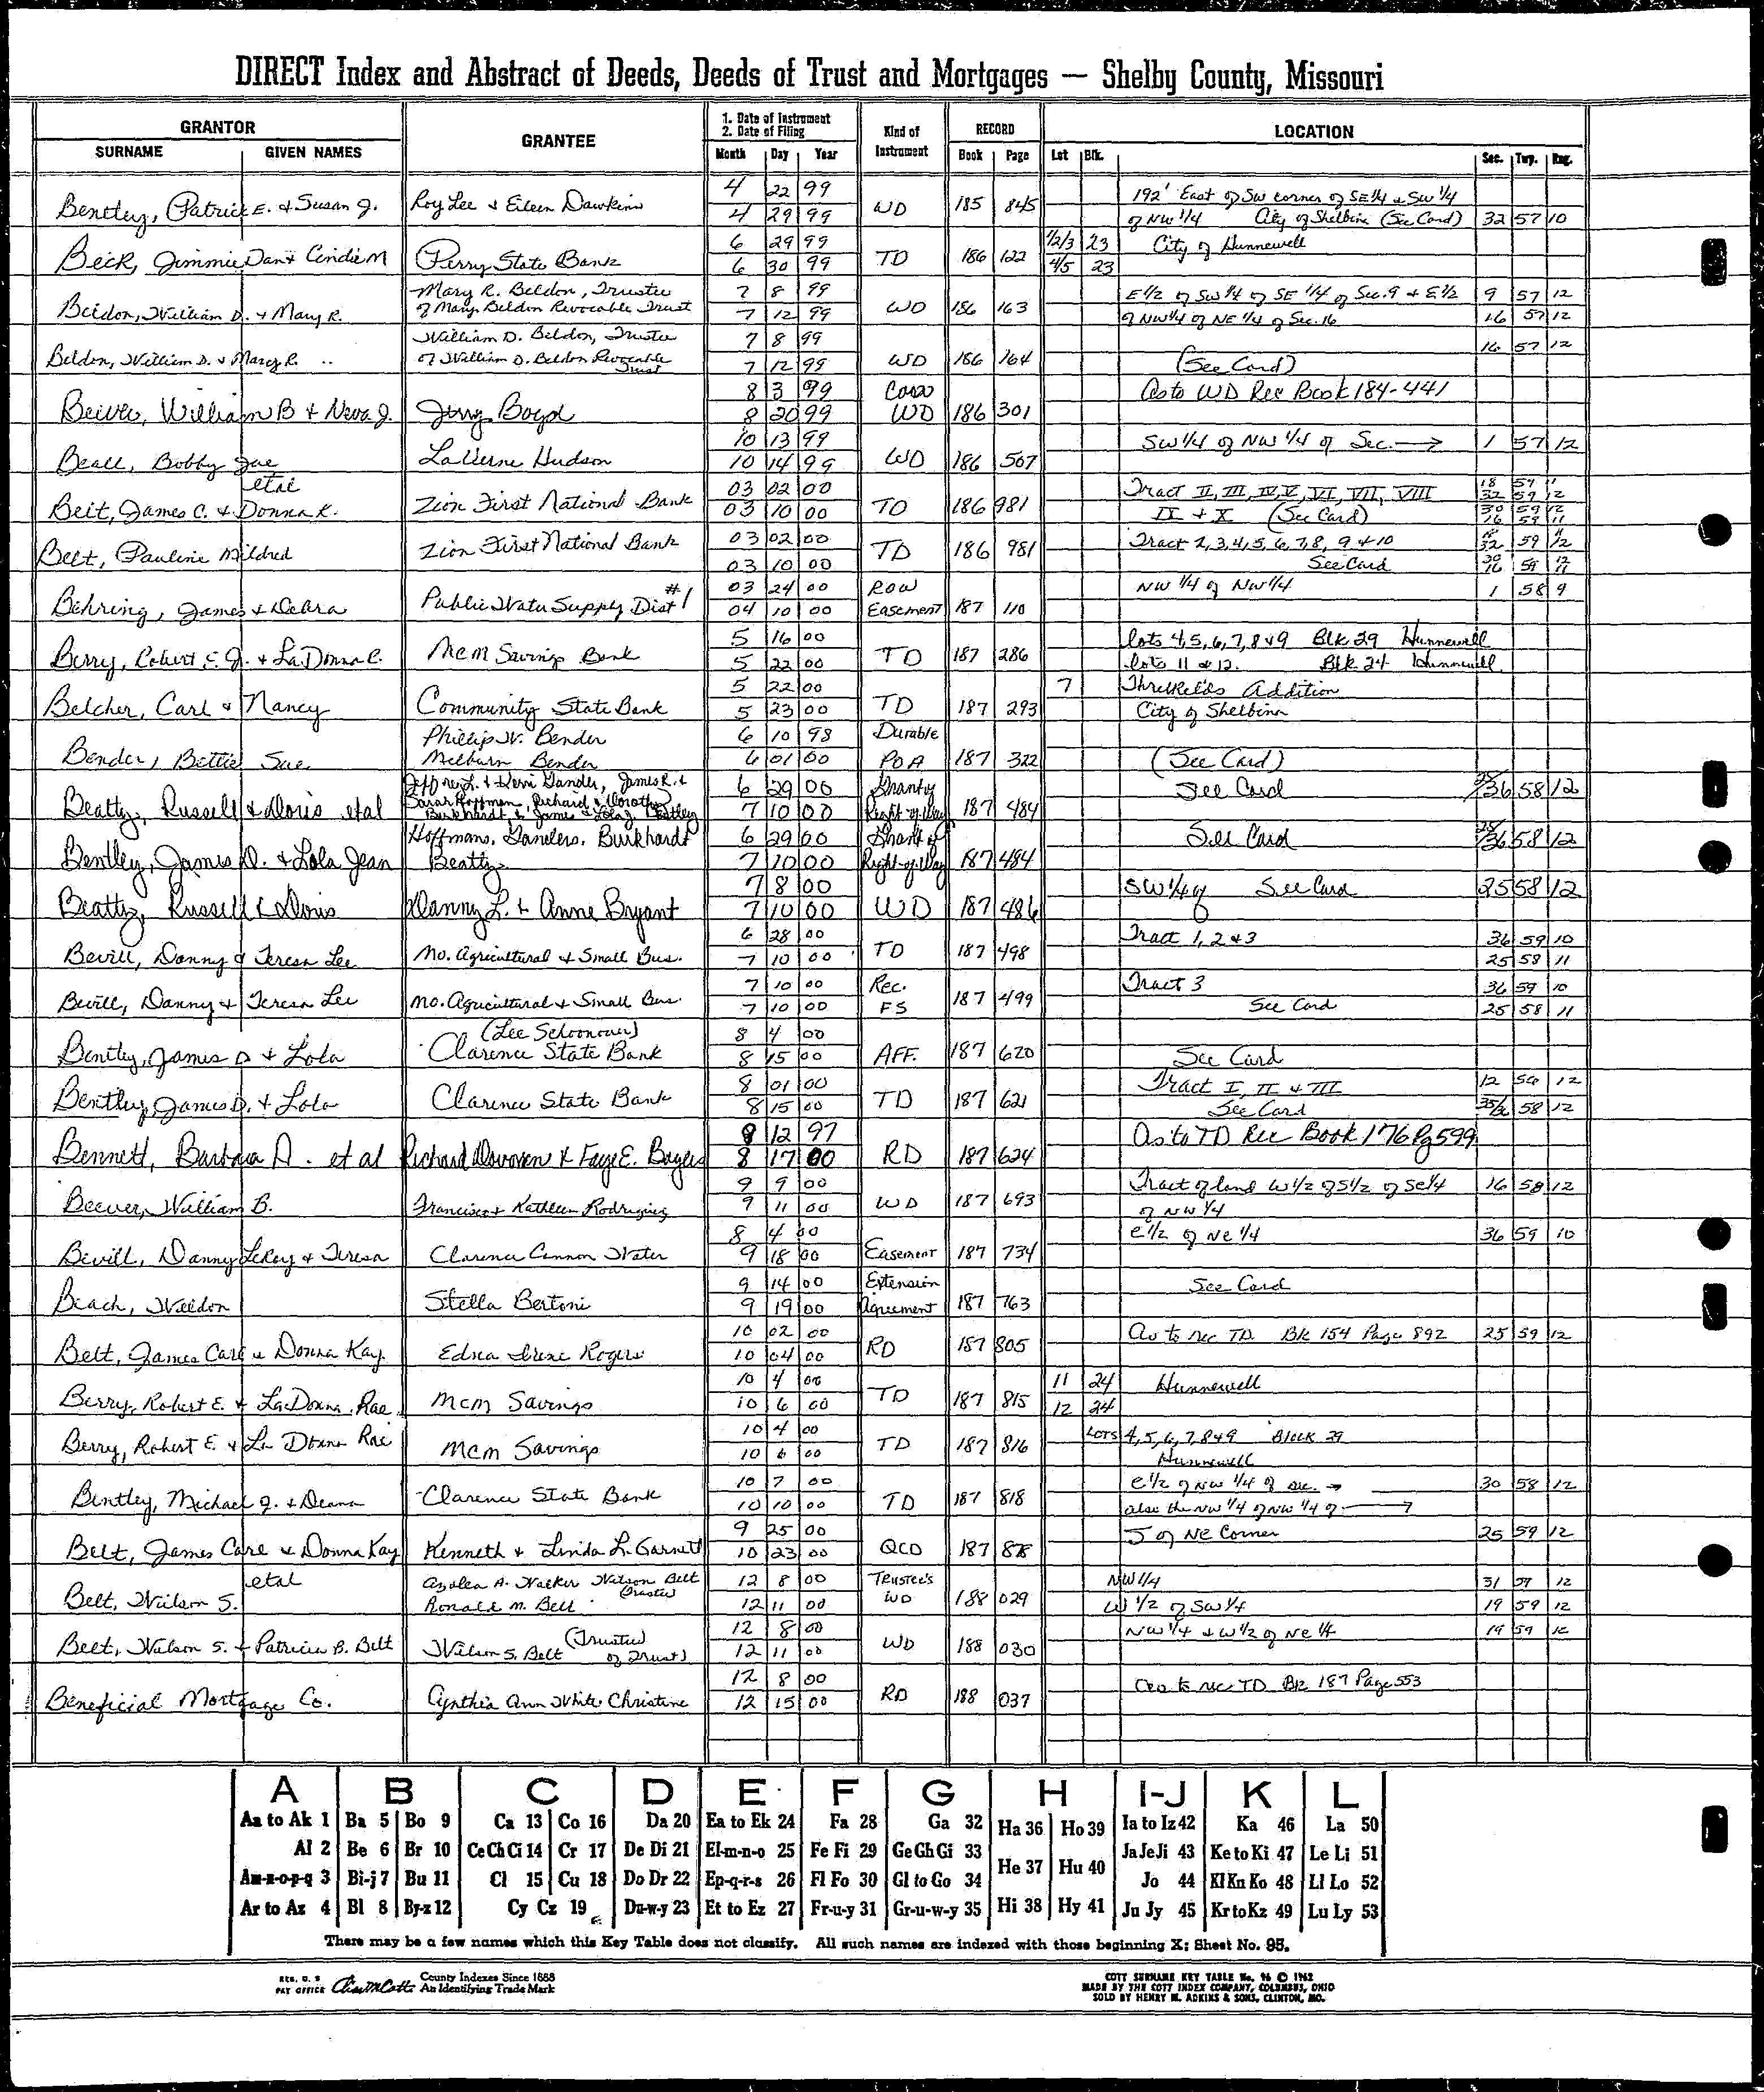 DIRECT Index and Abstract of Deeds, Deeds of Trust and Mortgages — Shelby County, Missouri
GRANTOR GRANTEE 1. Date of Instrument 2. Date of Filing Kind of Instrument RECORD LOCATION
SURNAME GIVEN NAMES Month Day Year Book Page Lot Blk. Sec. Twp. Rng.
Bentley, Patrick E. & Susan J. Roy Lee & Eileen Dawkins 4 22 99 WD 185 845 192' East of SW corner of SE 1/4 & SW 1/4
4 29 99 of NW 1/4 City of Shelbina (See Card) 32 57 10
Beck, Jimmie Dan & Cindie M Perry State Bank 6 29 99 TD 186 122 1/2/3 23 City of Hunnewell
6 30 99 4/5 23
Beldon, William D. & Mary R. Mary R. Beldon, Trustee 7 8 99 WD 186 163 E 1/2 of SW 1/4 of SE 1/4 of Sec. 9 & E 1/2 9 57 12
of Mary Beldon Revocable Trust 7 12 99 of NW 1/4 of NE 1/4 of Sec. 16 16 57 12
Beldon, William D. & Mary R. William D. Beldon, Trustee 7 8 99 WD 186 164 16 57 12
of William D. Beldon Revocable Trust 7 12 99 (See Card)
William B & Neva J. Jerry Boyd 8 3 99 Corr WD 186 301 As to WD Rec Book 184-441
8 20 99
Beall, Bobby Joe LaVerne Hudson 10 13 99 WD 186 567 SW 1/4 of NW 1/4 of Sec. → 1 57 12
10 14 99
etal
Belt, James C. & Donna K. Zion First National Bank 03 02 00 TD 186 981 Tract II, III, IV, V, VI, VII, VIII 18 59 11
32 59 12
03 10 00 IX & X (See Card) 30 59 12
16 59 11
Belt, Pauline Mildred Zion First National Bank 03 02 00 TD 186 981 Tract 2,3,4,5,6,7,8, 9 & 10 32 59 12
03 10 00 See Card 16 59 11
Behring, James & Debra Public Water Supply Dist #1 03 24 00 ROW NW 1/4 of NW 1/4 1 58 9
04 10 00 Easement 187 110
Berry, Robert E. Jr. & LaDonna R. MCM Savings Bank 5 16 00 TD 187 286 lots 4,5,6,7,8 & 9 Blk 29 Hunnewell
5 22 00 lots 11 & 12. Blk 24 Hunnewell
Belcher, Carl & Nancy Community State Bank 5 22 00 TD 187 293 7 Threlkeld's Addition
5 23 00 City of Shelbina
Bender, Bettie Sue Phillip W. Bender 6 10 98 Durable
Milburn Bender 6 01 00 POA 187 322 (See Card)
Beatty, Russell & Doris etal Jeffrey L. & Kerri Gander, James R. & 6 29 00 Grant of See Card 36 58 12
Sarah Hoffman, Richard & Dorothy
Burkhardt & James & Lola J. Bentley 7 10 00 Right-of-Way 187 484
Bentley, James D. & Lola Jean Hoffmans, Ganders, Burkhardt 6 29 00 Grant of See Card 36 58 12
Beatty 7 10 00 Right-of-Way 187 484
Beatty, Russell & Doris Danny L. & Anne Bryant 7 8 00 WD 187 486 SW 1/4 of See Card 25 58 12
7 10 00
Bevill, Danny & Teresa Lee Mo. Agricultural & Small Bus. 6 28 00 TD 187 498 Tract 1, 2 & 3 36 59 10
7 10 00 25 58 11
Bevill, Danny & Teresa Lee Mo. Agricultural & Small Bus. 7 10 00 Rec. 187 499 Tract 3 36 59 10
7 10 00 FS See Card 25 58 11
Bentley, James D & Lola (Lee Schoonover) 8 4 00
Clarence State Bank 8 15 00 AFF. 187 620 See Card
Bentley, James D. & Lola Clarence State Bank 8 01 00 TD 187 621 Tract I, II & III 12 56 12
8 15 00 See Card 35/36 58 12
Bennett, Barbara A. et al Richard Donovan & Faye E. Bayliss 8 12 97 RD 187 624 As to TD Rec Book 176 Pg 599
8 17 00
Beever, William B. Francisco & Kathleen Rodriguez 9 9 00 WD 187 693 Tract of land W 1/2 of S 1/2 of SE 1/4 16 58 12
9 11 00 of NW 1/4
Bevill, Danny LeRoy & Teresa Clarence Cannon Water 8 4 00 Easement 187 734 E 1/2 of NE 1/4 36 59 10
9 18 00
Beach, Weldon Stella Bertoni 9 14 00 Extension See Card
9 19 00 Agreement 187 763
Belt, James Carl & Donna Kay Edna Irene Rogers 10 02 00 RD 187 805 As to rec TD Bk 154 Page 892 25 59 12
10 04 00
Berry, Robert E. & LaDonna Rae MCM Savings 10 4 00 TD 187 815 11 24 Hunnewell
10 6 00 12 24
Berry, Robert E. & La Donna Rae MCM Savings 10 4 00 TD 187 816 Lots 4,5,6,7,8 & 9 Block 29
10 6 00 Hunnewell
Bentley, Michael J. & Deana Clarence State Bank 10 7 00 TD 187 818 E 1/2 of NW 1/4 of sec. → 30 58 12
10 10 00 also the NW 1/4 of NW 1/4 of →
Belt, James Carl & Donna Kay Kenneth & Linda L. Garnett 9 25 00 QCD 187 S of NE Corner 25 59 12
10 23 00
etal
Belt, Wilson S. Azalea A. Walker Wilson Belt (Trustee) 12 8 00 Trustee's WD 188 029 NW 1/4 31 59 12
Ronald M. Belt 12 11 00 W 1/2 of SW 1/4 19 59 12
Belt, Wilson S. & Patricia B. Belt Wilson S. Belt (Trustee of Trust) 12 8 00 WD 188 030 NW 1/4 & W 1/2 of NE 1/4 19 59 12
12 11 00
Beneficial Mortgage Co. Cynthia Ann White Christine 12 8 00 RD 188 037 As to rec TD Bk 187 Page 553
12 15 00
A B C D E F G H I-J K L
Aa to Ak 1 Ba 5 Bo 9 Ca 13 Co 16 Da 20 Ea to Ek 24 Fa 28 Ga 32 Ha 36 Ho 39 Ia to Iz 42 Ka 46 La 50
Al 2 Be 6 Br 10 Ce Ch Ci 14 Cr 17 De Di 21 El-m-n-o 25 Fe Fi 29 Ge Gh Gi 33 He 37 Hu 40 Ja Je Ji 43 Ke to Ki 47 Le Li 51
Am-n-o-p-q 3 Bi-j 7 Bu 11 Cl 15 Cu 18 Do Dr 22 Ep-q-r-s 26 Fl Fo 30 Gl to Go 34 Jo 44 Kl Kn Ko 48 Ll Lo 52
Ar to Az 4 Bl 8 By-z 12 Cy Cz 19 Du-w-y 23 Et to Ez 27 Fr-u-y 31 Gr-u-w-y 35 Hi 38 Hy 41 Ju Jy 45 Kr to Kz 49 Lu Ly 53
There may be a few names which this Key Table does not classify. All such names are indexed with those beginning X: Sheet No. 95.
REG. U. S. PAT OFFICE County Indexes Since 1888 An Identifying Trade Mark
COTT SURNAME KEY TABLE No. 96 © 1962
MADE BY THE COTT INDEX COMPANY, COLUMBUS, OHIO
SOLD BY HENRY M. ADKINS & SONS, CLINTON, MO.